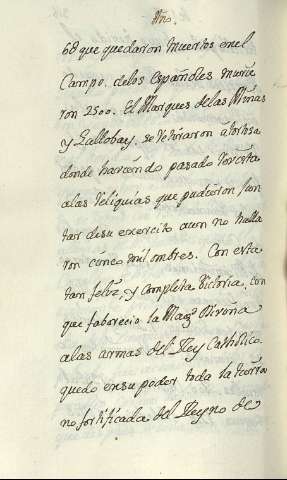 Año.
68 que quedaron muertos en el
Campo. delos españoles murie
ron 2500. El Marques delas Minas
y Gallobay, se retiraron a tortosa
donde haviendo pasado revista
alas reliquias que pudieron jun
tar desu exercito aun no halla
ron cinco mil ombres. Con esta
tam feliz, y completa victoria, con
que faborecio la Magd Divina
alas armas del Rey Catholico.
quedo ensu poder toda la tierra
no fortificada del Reyno de